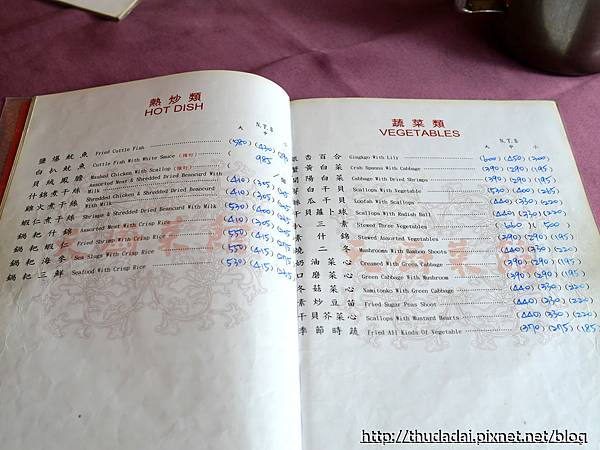 熱炒類
HOT DISH
N.T.$
大 中 小
鹽爆魷魚 Fried Cuttle Fish (580) (430) (290)
白扒魷魚 Cuttle Fish With White Sauce
985
Mashed Chicken With Scallop
什錦煮干絲 Assorted Meat & Shredded Dried Beancurd With Milk (410) (305)
雞火煮干絲 Shredded Chicken & Shredded Dried Beancurd With Milk (410) (305)
蝦仁煮干絲 Shrimps & Shredded Dried Beancurd With Milk (530) (415)
鍋粑什錦 Assorted Meat With Crisp Rice (410) (305)
鍋粑蝦仁 Fried Shrimp With Crisp Rice (550) (415)
鍋粑海參 Sea Slugs With Crisp Rice (550) (415)
鍋粑三鮮 Seafood With Crisp Rice (530) (415)
蔬菜類
VEGETABLES
N.T.$
大 中 小
百合 Gingkgo With Lily (600) (450) (300)
蟹黃白菜 Crab Spawns With Cabbage (390) (290) (195)
白菜 Cabbage With Dried Shrimps (390) (290) (195)
白干貝 Scallops With Vegetable (530) (400)
絲瓜干貝 Loofah With Scallops (440) (330) (220)
干貝蘿蔔球 Scallops With Radish Ball (440) (330) (220)
扒三素 Stewed Three Vegetables 660 500
素什錦 Stewed Assorted Vegetables (390) (290) (195)
燒二冬 Mushrooms With Bamboo Shoots (440) (330) (220)
奶油菜心 Creamed With Green Cabbage (390) (290) (195)
口蘑菜心 Green Cabbage With Mushroom (390) (290) (195)
冬菇菜心 Namitonko With Green Cabbage (440) (330) (220)
素炒豆苗 Fried Sugar Peas Shoot (440) (330) (220)
干貝芥菜心 Scallops With Mustard Hearts (440) (330) (220)
季節時蔬 Fried All Kinds Of Vegetable (370) (275) (185)
http://thudadai.pixnet.net/blog